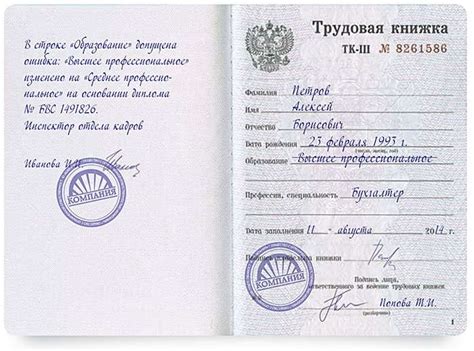 В строке «Образование» допущена
ошибка: «Высшее профессиональное»
изменено на «Среднее профессио-
нальное» на основании диплома
№ БВС 1491826.
Инспектор отдела кадров
Иванова И.И.
КОМПАНИЯ
Трудовая книжка
ТК-III № 8261586
Фамилия Петров
Имя Алексей
Отчество Борисович
Дата рождения 23 февраля 1993 г.
(число, месяц, год)
Образование Высшее профессиональное
Профессия, специальность Бухгалтер
Дата заполнения 11 августа 2014 г.
Подпись владельца книжки
КОМПАНИЯ
Подпись лица,
ответственного за ведение трудовых книжек
Попова Т.И.
(разборчиво)
1